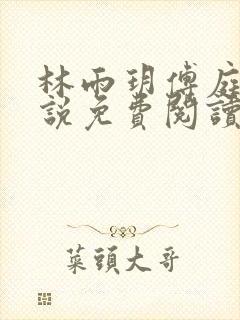 林雨玥傅庭
說免費閱讀
菜頭大哥